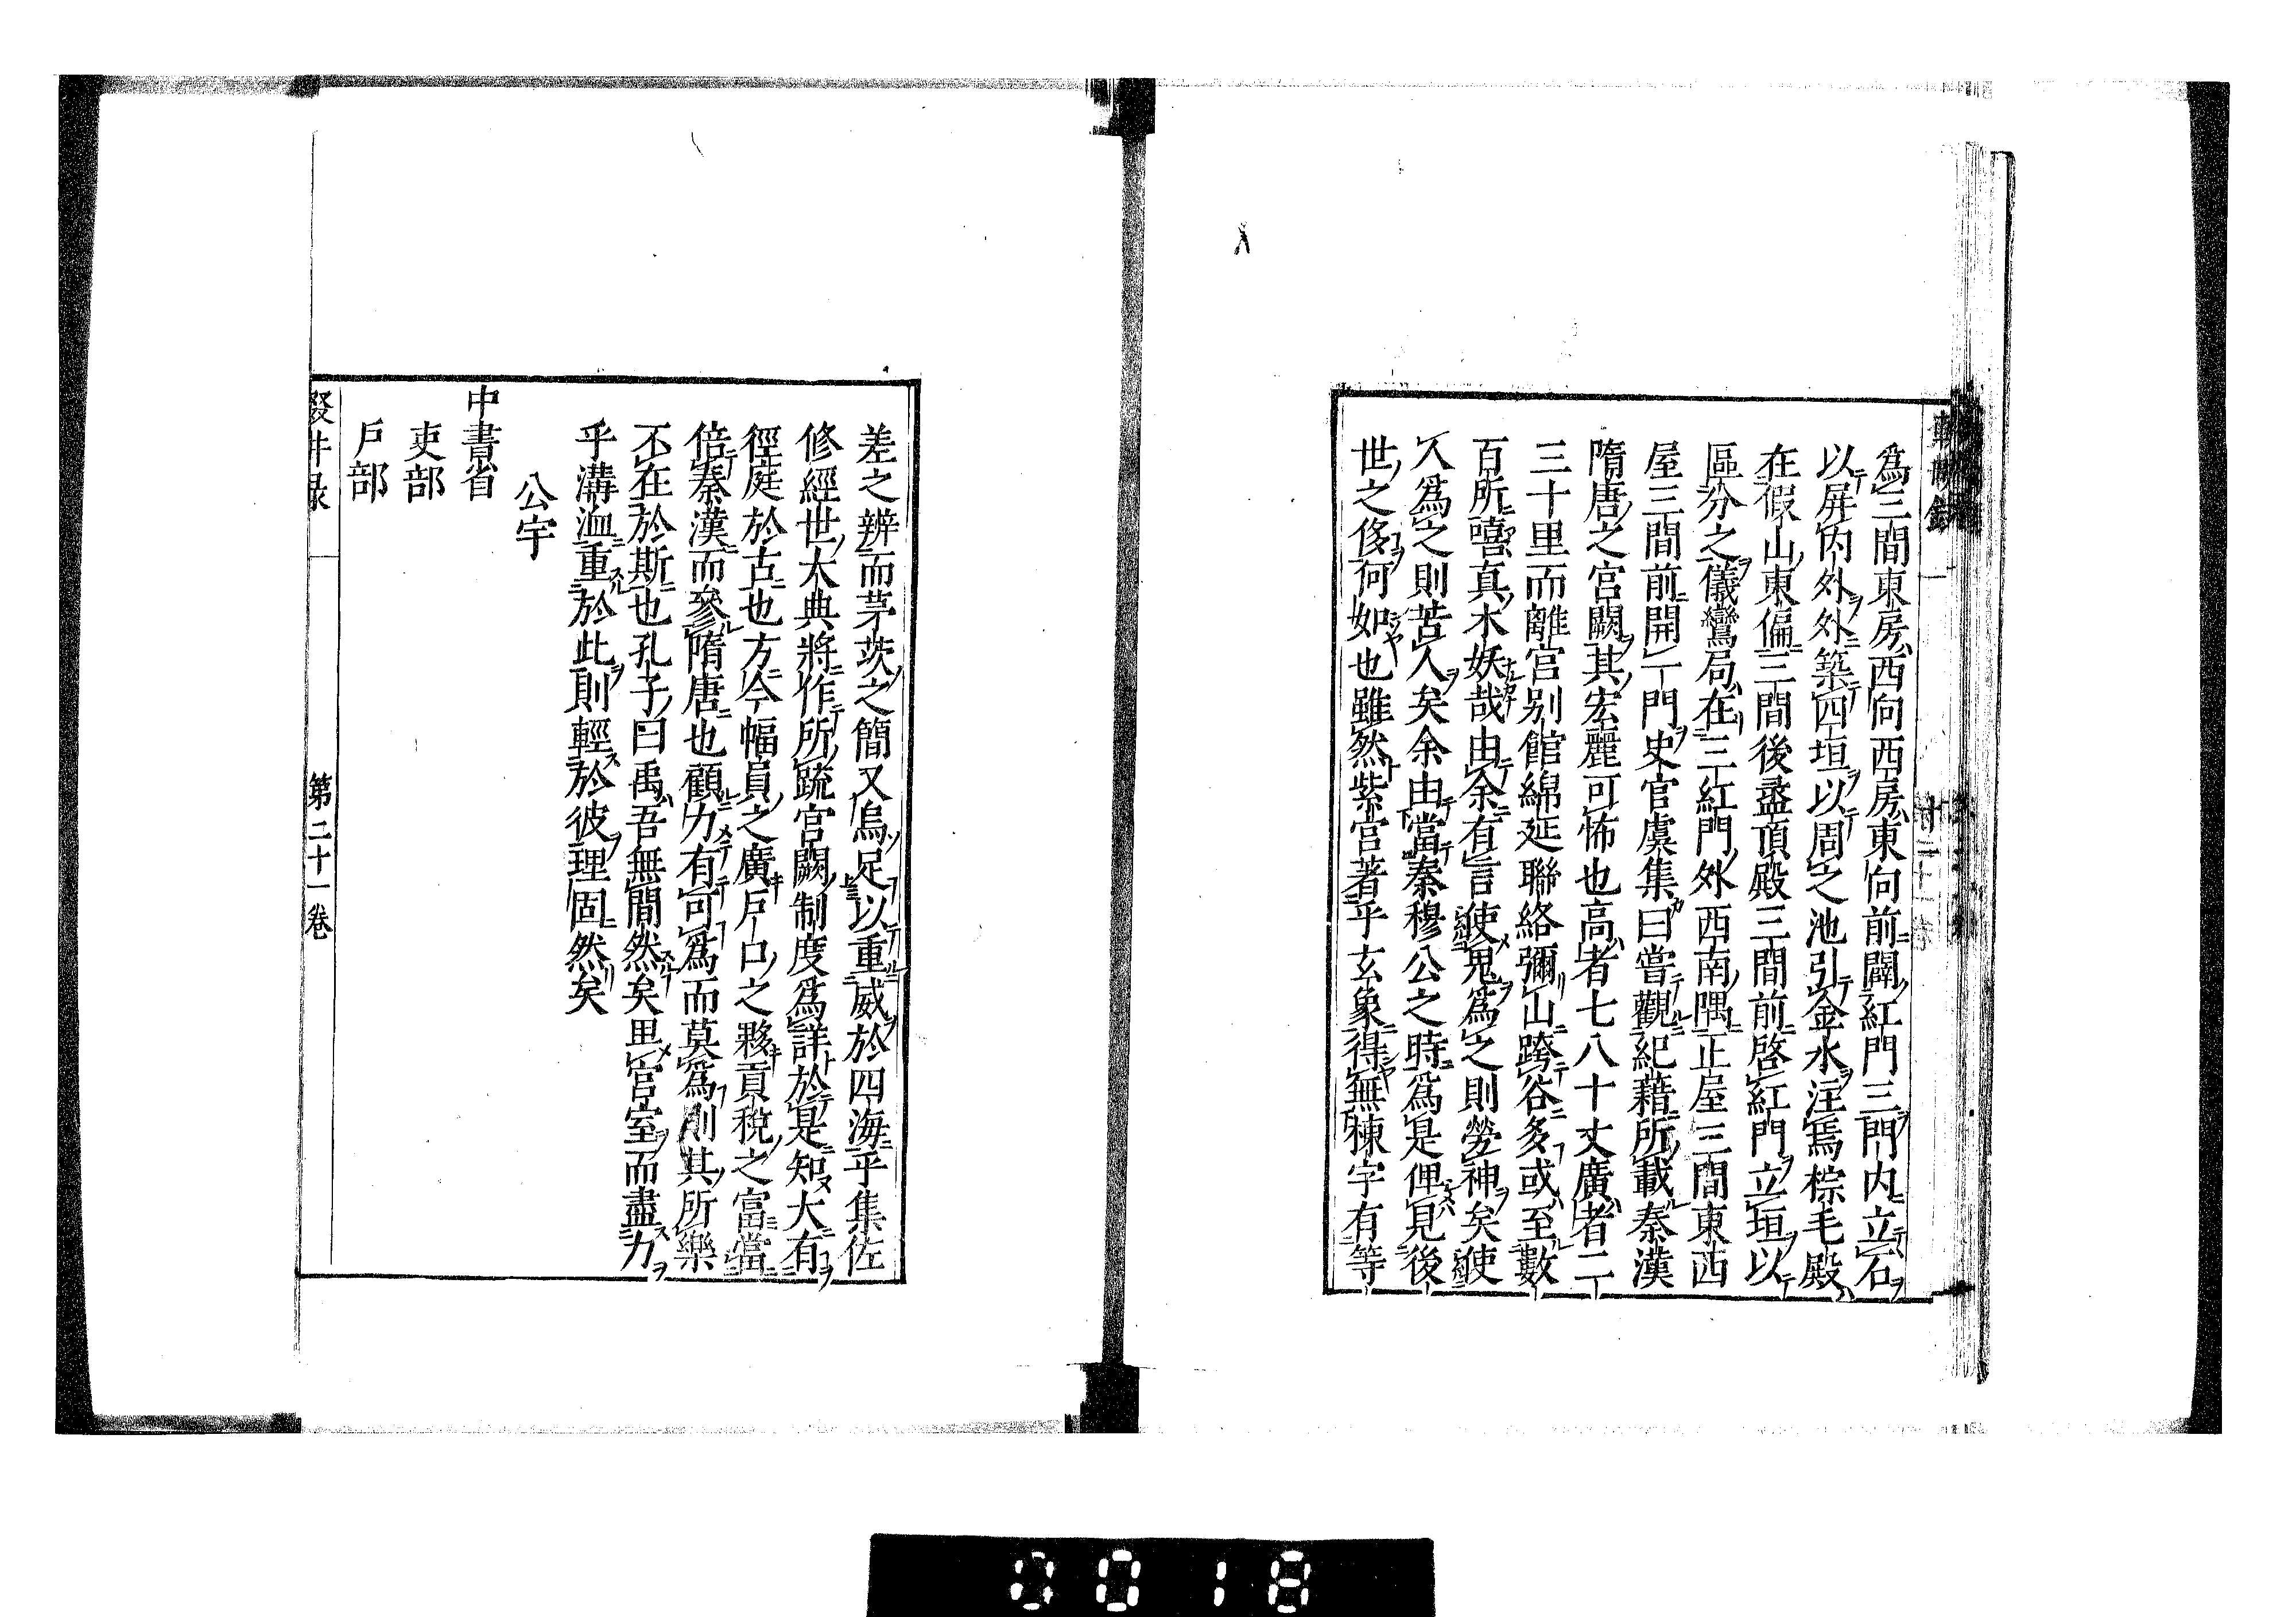 爲三間東房西向西房東向前闢紅門三門内立石
以屏内外外築四垣以周之池引金水注焉棕毛殿
在假山東偏三間後盝頂殿三間前啓紅門立垣以
區分之儀鸞局在三紅門外西南隅正屋三間東西
屋三間前開一門史官虞集曰嘗觀紀藉所載秦漢
隋唐之宮闕其宏麗可怖也高者七八十丈廣者二
三十里而離宮别館綿延聯絡彌山跨谷多或至數
百所嘻真木妖哉由余有言使鬼爲之則勞神矣使
人爲之則苦人矣余由當秦穆公之時爲是俾見後
世之侈何如也雖然紫宮著乎玄象得無棟宇有等
差之辨而茅茨之簡又烏足以重威於四海乎集佐
修經世大典將作所疏宮闕制度爲詳於是知大有
徑庭於古也方今幅員之廣戶口之夥貢稅之富當
倍秦漢而參隋唐也顧力有可爲而莫爲則其所樂
不在於斯也孔子曰禹吾無間然矣卑宮室而盡力
乎溝洫重於此則輕於彼理固然矣
公宇
中書省
吏部
戶部
輟畊录
第二十一卷
0018